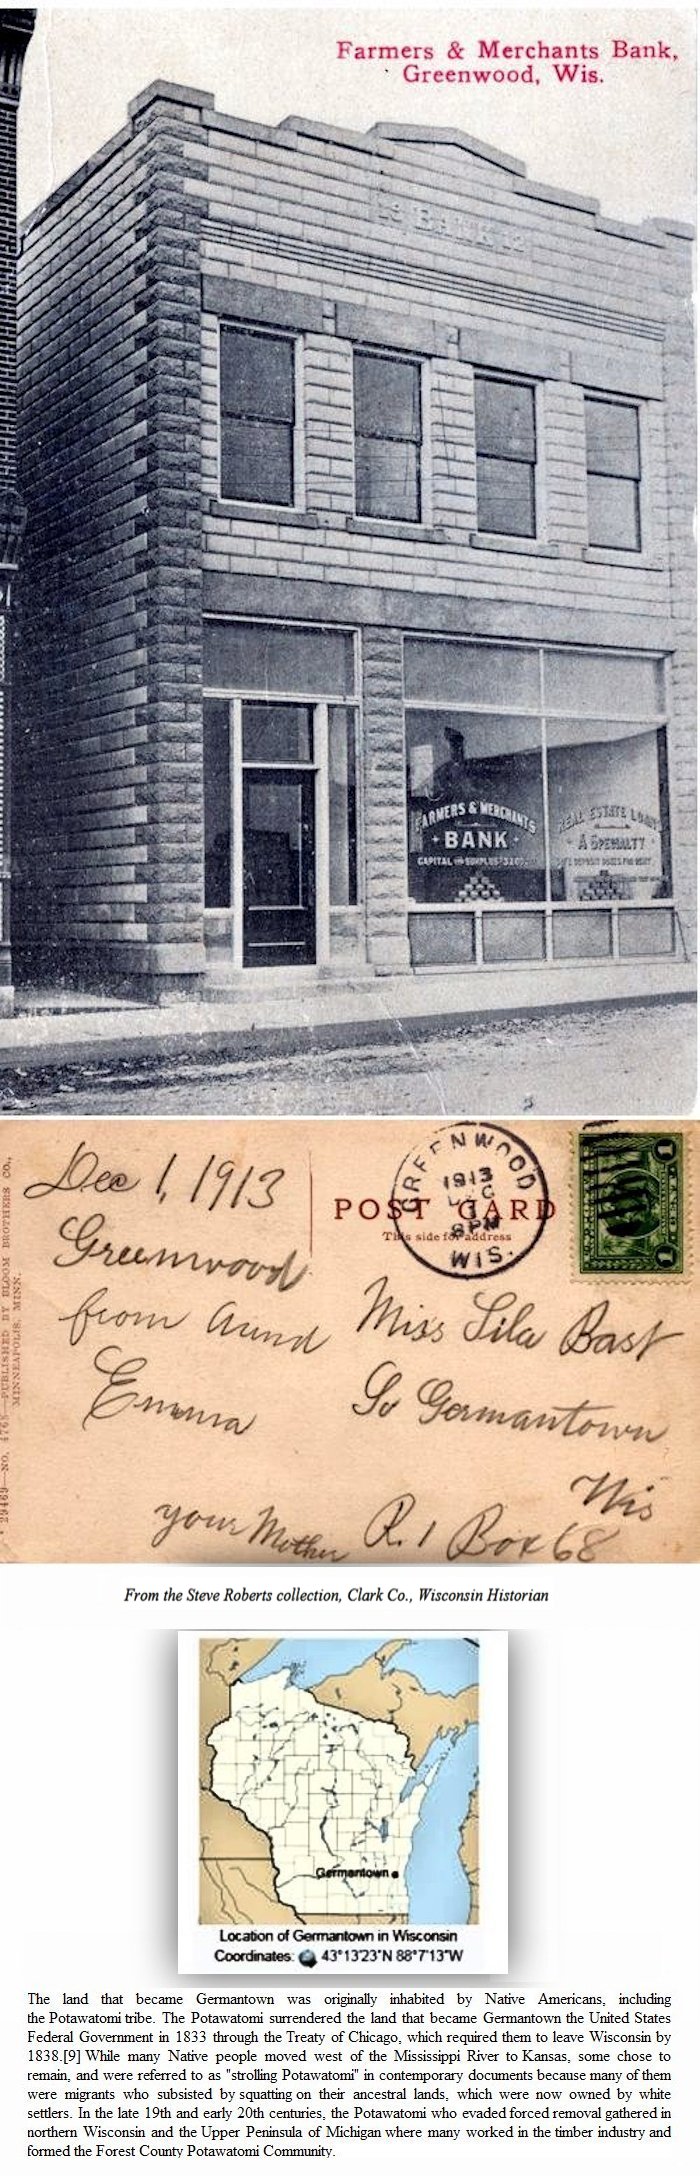 Farmers & Merchants Bank,
Greenwood, Wis.
19 BANK 12
FARMERS & MERCHANTS
BANK
CAPITAL AND SURPLUS
REAL ESTATE LOANS
A SPECIALTY
SAFE DEPOSIT BOXES FOR RENT
29469—NO. 4768—PUBLISHED BY BLOOM BROTHERS CO.,
MINNEAPOLIS, MINN.
Dec 1, 1913
Greenwood
from Aund
Emma
your Mother
POST CARD
This side for address
GREENWOOD
1913
DEC
1
8 PM
WIS.
1 CENT 1
Miss Lila Bast
So Germantown
Wis
R. 1 Box 68
From the Steve Roberts collection, Clark Co., Wisconsin Historian
Germantown
Location of Germantown in Wisconsin
Coordinates: 43°13'23"N 88°7'13"W
The land that became Germantown was originally inhabited by Native Americans, including
the Potawatomi tribe. The Potawatomi surrendered the land that became Germantown the United States
Federal Government in 1833 through the Treaty of Chicago, which required them to leave Wisconsin by
1838.[9] While many Native people moved west of the Mississippi River to Kansas, some chose to
remain, and were referred to as "strolling Potawatomi" in contemporary documents because many of them
were migrants who subsisted by squatting on their ancestral lands, which were now owned by white
settlers. In the late 19th and early 20th centuries, the Potawatomi who evaded forced removal gathered in
northern Wisconsin and the Upper Peninsula of Michigan where many worked in the timber industry and
formed the Forest County Potawatomi Community.